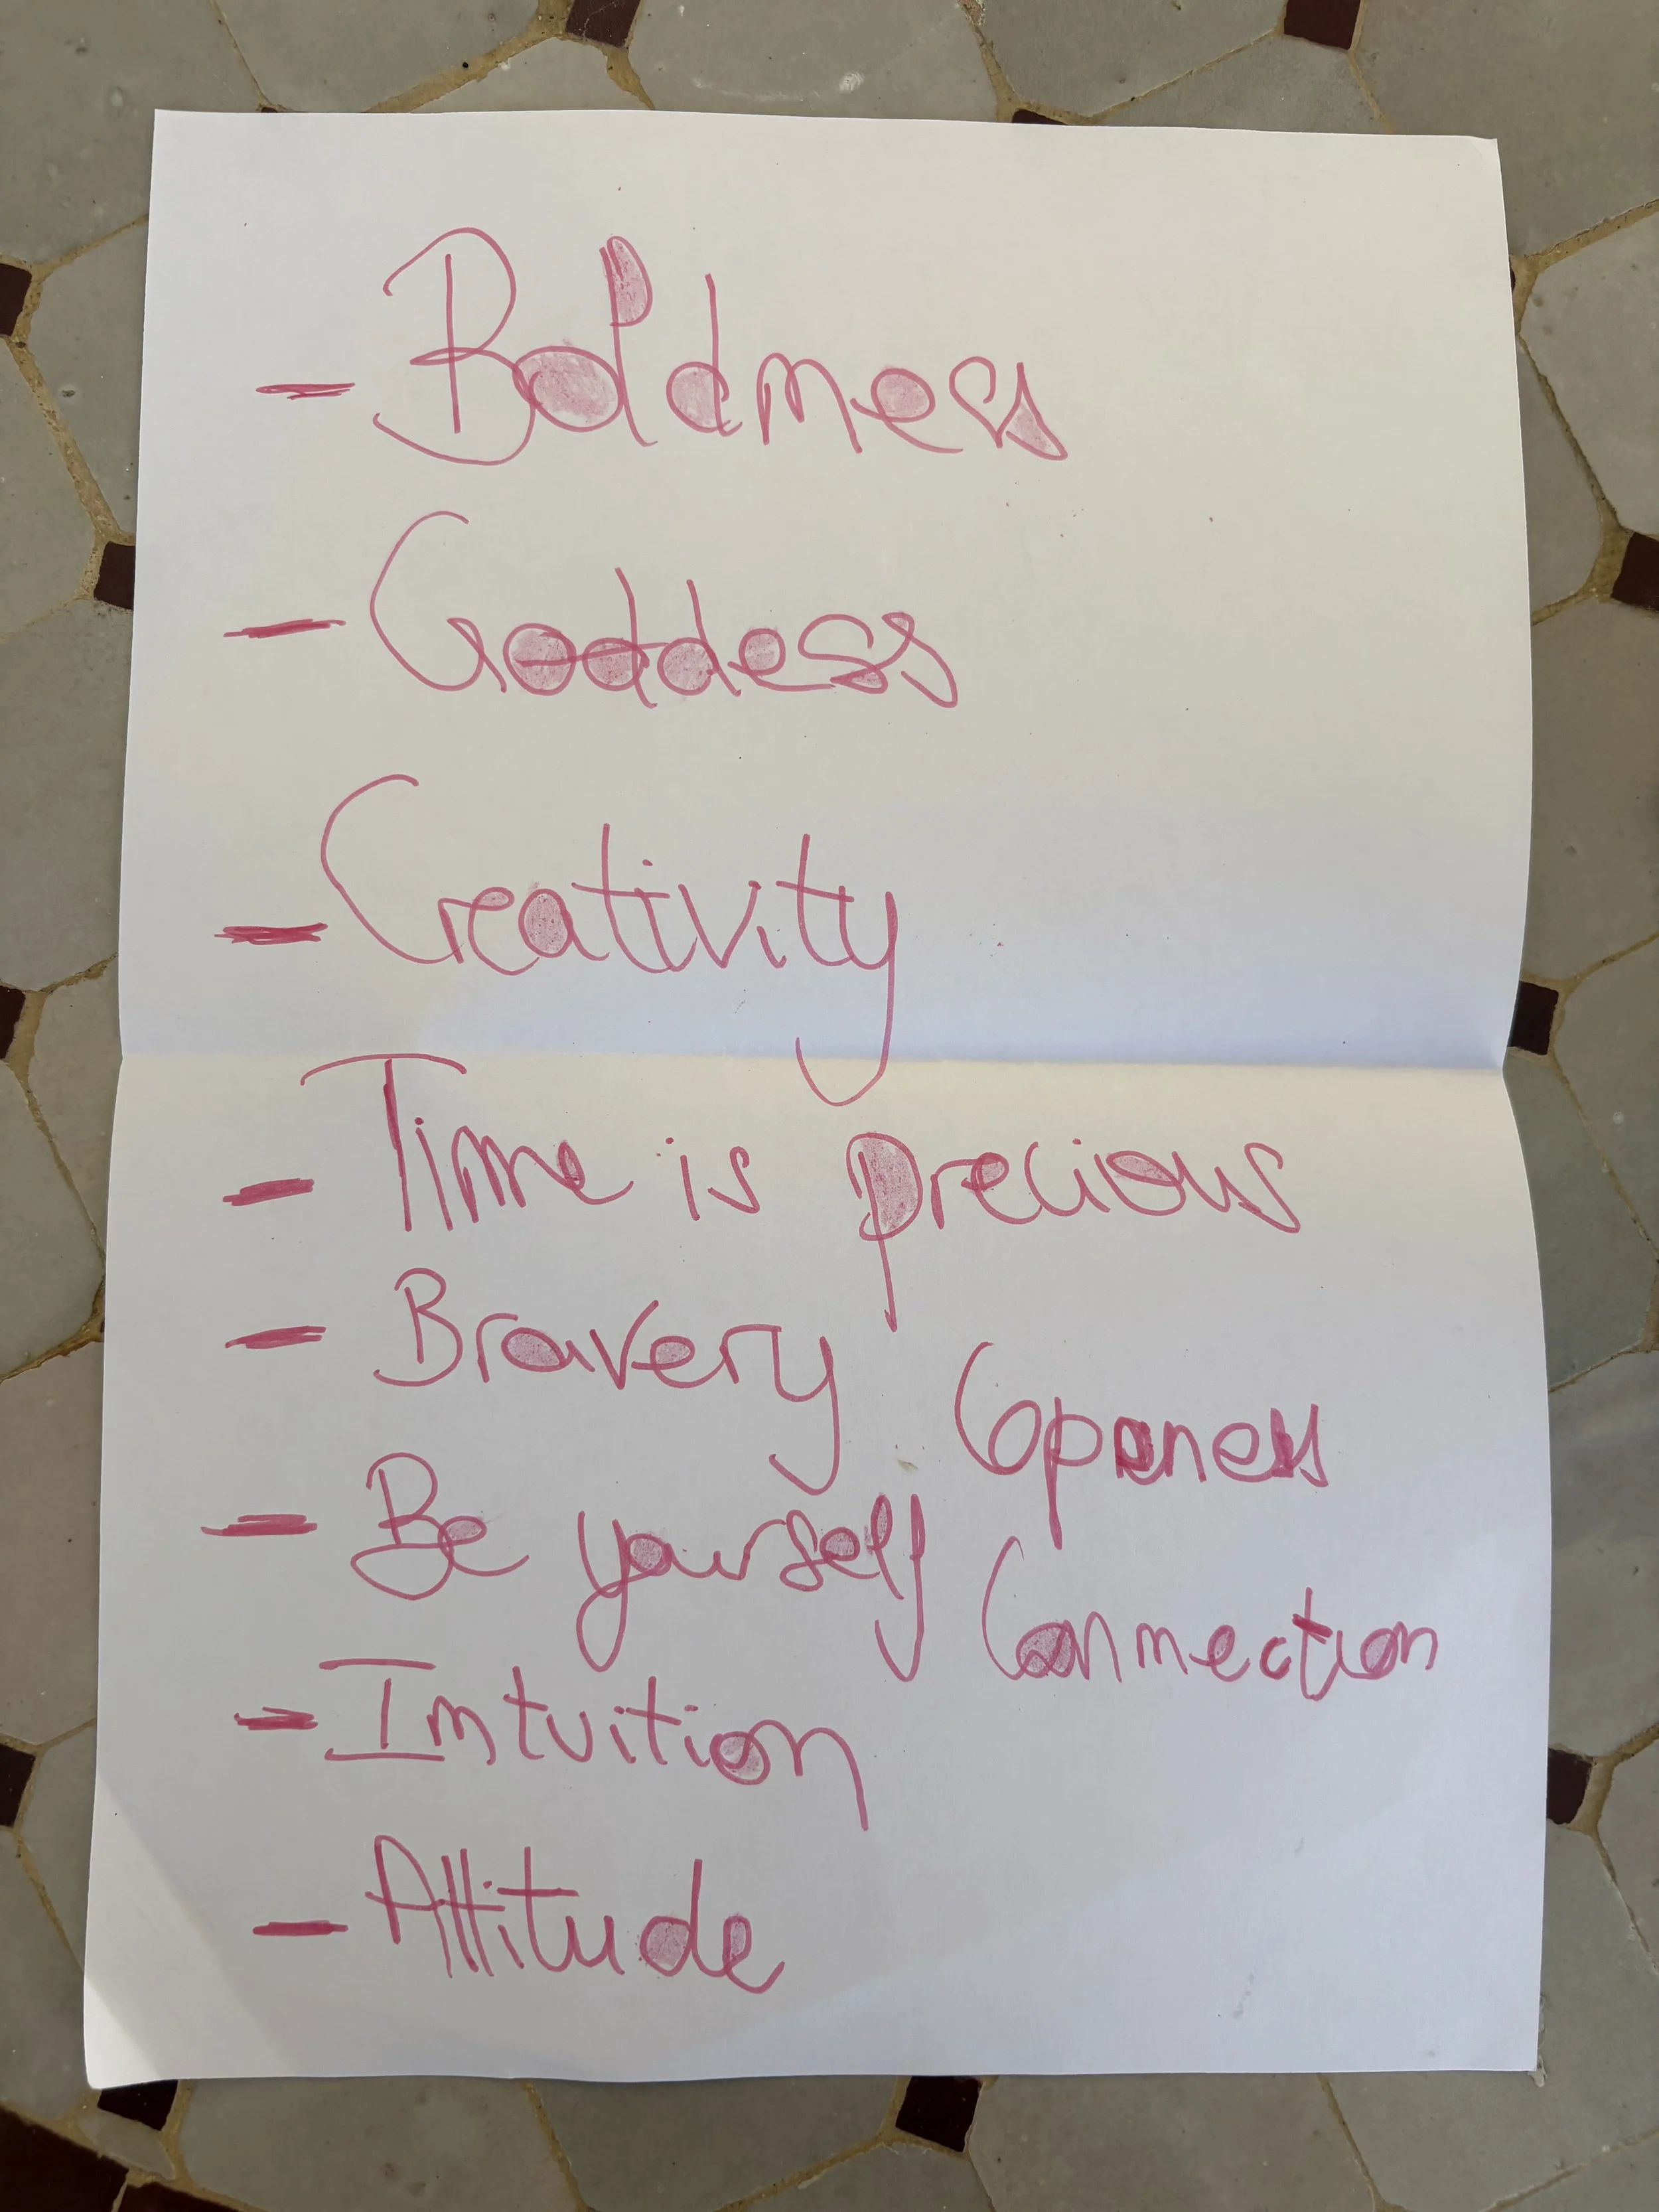 - Boldness
- Goddess
- Creativity
- Time is precious
- Bravery
Openess
- Be yourself
Connection
- Intuition
- Attitude